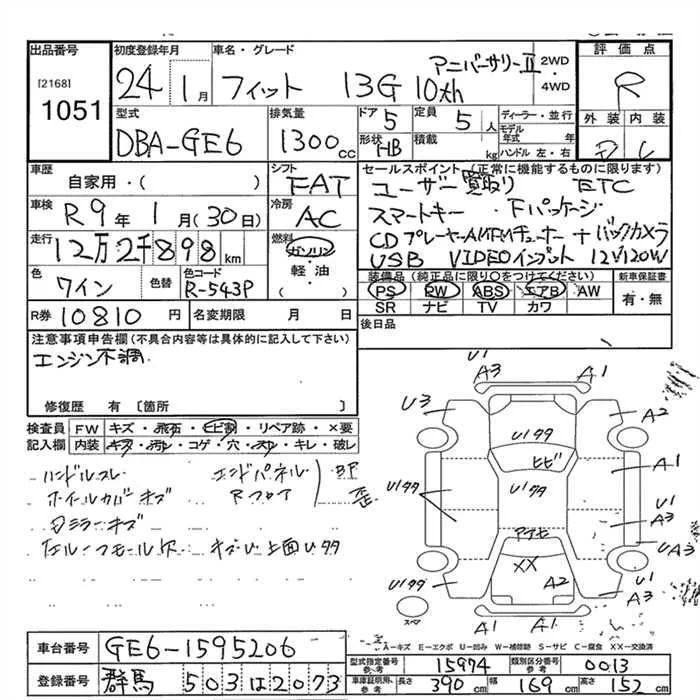 出品番号
[2168]
1051
初度登録年月
24 1月
車名・グレード
フィット 13G 10th アニバーサリーⅡ
2WD
・
4WD
評価点
R
型式
DBA-GE6
排気量
1300cc
ドア 5
定員 5人
形状 HB
積載 kg
ディーラー・並行
モデル年式 年
ハンドル 左・右
外装 内装
車歴
自家用・( )
シフト
FAT
セールスポイント (正常に機能するものに限ります)
ユーザー買取り ETC
スマートキー ・Fパッケージ
CDプレーヤーAM/FMチューナー + バックカメラ
USB VIDEOインプット 12V120W
車検
R9年 1月(30日)
冷房
AC
走行
12万2千898km
燃料
ガソリン
・
軽・油
( )
色
ワイン
色替
色コード
R-543P
装備品 (純正品に限り○をつけてください)
PS PW ABS エアB AW
SR ナビ TV カワ
新車保証書
有・無
R券 10810円
名変期限 月 日
後日品
注意事項申告欄(不具合内容等は具体的に記入して下さい)
エンジン不調
修復歴 有 〔箇所 〕
検査員記入欄
FW キズ・飛石・ヒビ割・リペア跡・×要
内装 キズ・汚レ・コゲ・穴・スレ・キレ・破レ
ハンドルスレ
ホイールカバーキズ
エンドパネル
Rフロア
歪
ミラーキズ
ルーフモール欠 キズU 上面Uタタ
U1
A3 A1
U3 A2
U1タタ
ヒビ
U1タタ U1タタ
A1
U1
A3
UA3
アナヒ
XX
U1タタ
A2
U1
A3
A1 A1
スペア
A-キズ E-エクボ U-凹み W-補修跡 S-サビ C-腐食 XX-交換済
車台番号
GE6-1595206
登録番号
群馬 503は2073
型式指定番号 参考
15974
類別区分番号 参考
0013
車庫証明記入用 参考
長さ 390cm
幅 169cm
高さ 152cm